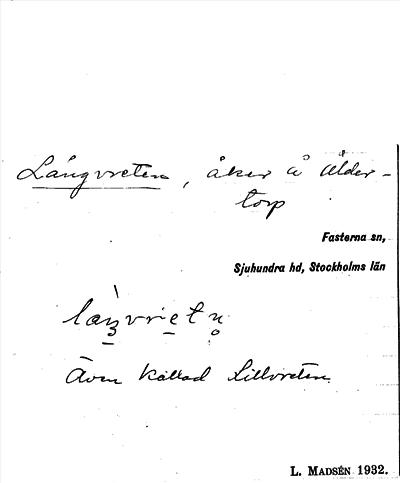 Långvreten, åker å Ålder-
torp
Fasterna sn,
Sjuhundra hd, Stockholms län
Även kallad Lillvreten
L. MADSÉN 1932.